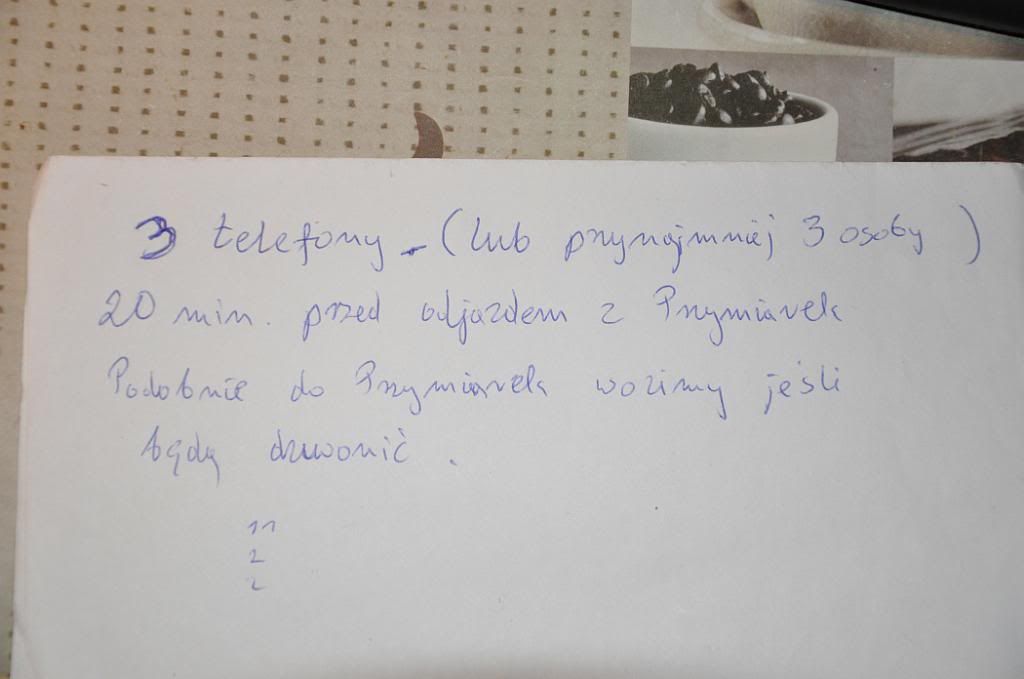 3 telefony - (lub przynajmniej 3 osoby)
20 min. przed odjazdem z Przymiarek
Podobnie do Przymiarek wozimy jeśli
będą dzwonić.
11
2
2